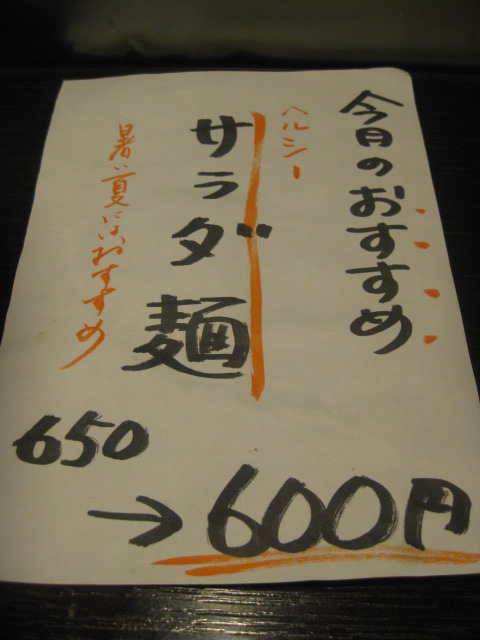 今日のおすすめ
ヘルシー
サラダ麺
暑い夏にはおすすめ
650
→600円